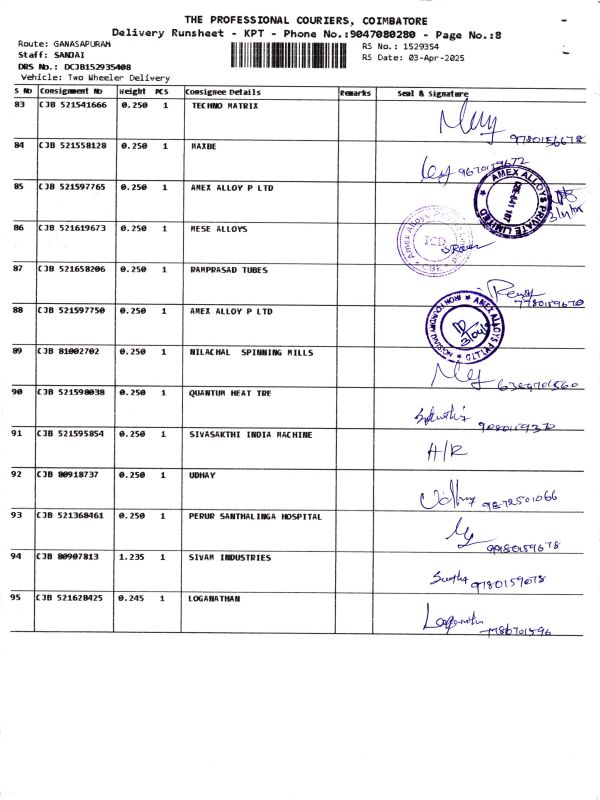 THE PROFESSIONAL COURIERS, COIMBATORE
Delivery Runsheet - KPT - Phone No.:9047080280 - Page No.:8
Route: GANASAPURAM
RS No.: 1529354
Staff: SANJAI
RS Date: 03-Apr-2025
DRS No.: DCJB152935408
Vehicle: Two Wheeler Delivery
S No Consignment No Weight PCS Consignee Details Remarks Seal & Signature
83 CJB 521541666 0.250 1 TECHNO MATRIX
9780156678
84 CJB 521558128 0.250 1 MAXBE
9670159672
85 CJB 521597765 0.250 1 AMEX ALLOY P LTD
AMEX ALLOYS PRIVATE LIMITED
86 CJB 521619673 0.250 1 MESE ALLOYS
ICD
87 CJB 521658206 0.250 1 RAMPRASAD TUBES
7780159670
88 CJB 521597750 0.250 1 AMEX ALLOY P LTD
89 CJB 81002702 0.250 1 NILACHAL SPINNING MILLS
6389701560
90 CJB 521598038 0.250 1 QUANTUM HEAT TRE
9080159370
91 CJB 521595854 0.250 1 SIVASAKTHI INDIA MACHINE
H/R
92 CJB 80918737 0.250 1 UDHAY
Udhay 9872501066
93 CJB 521368461 0.250 1 PERUR SANTHALINGA HOSPITAL
99180159678
94 CJB 80907813 1.235 1 SIVAM INDUSTRIES
9780159078
95 CJB 521628425 0.245 1 LOGANATHAN
7786701596